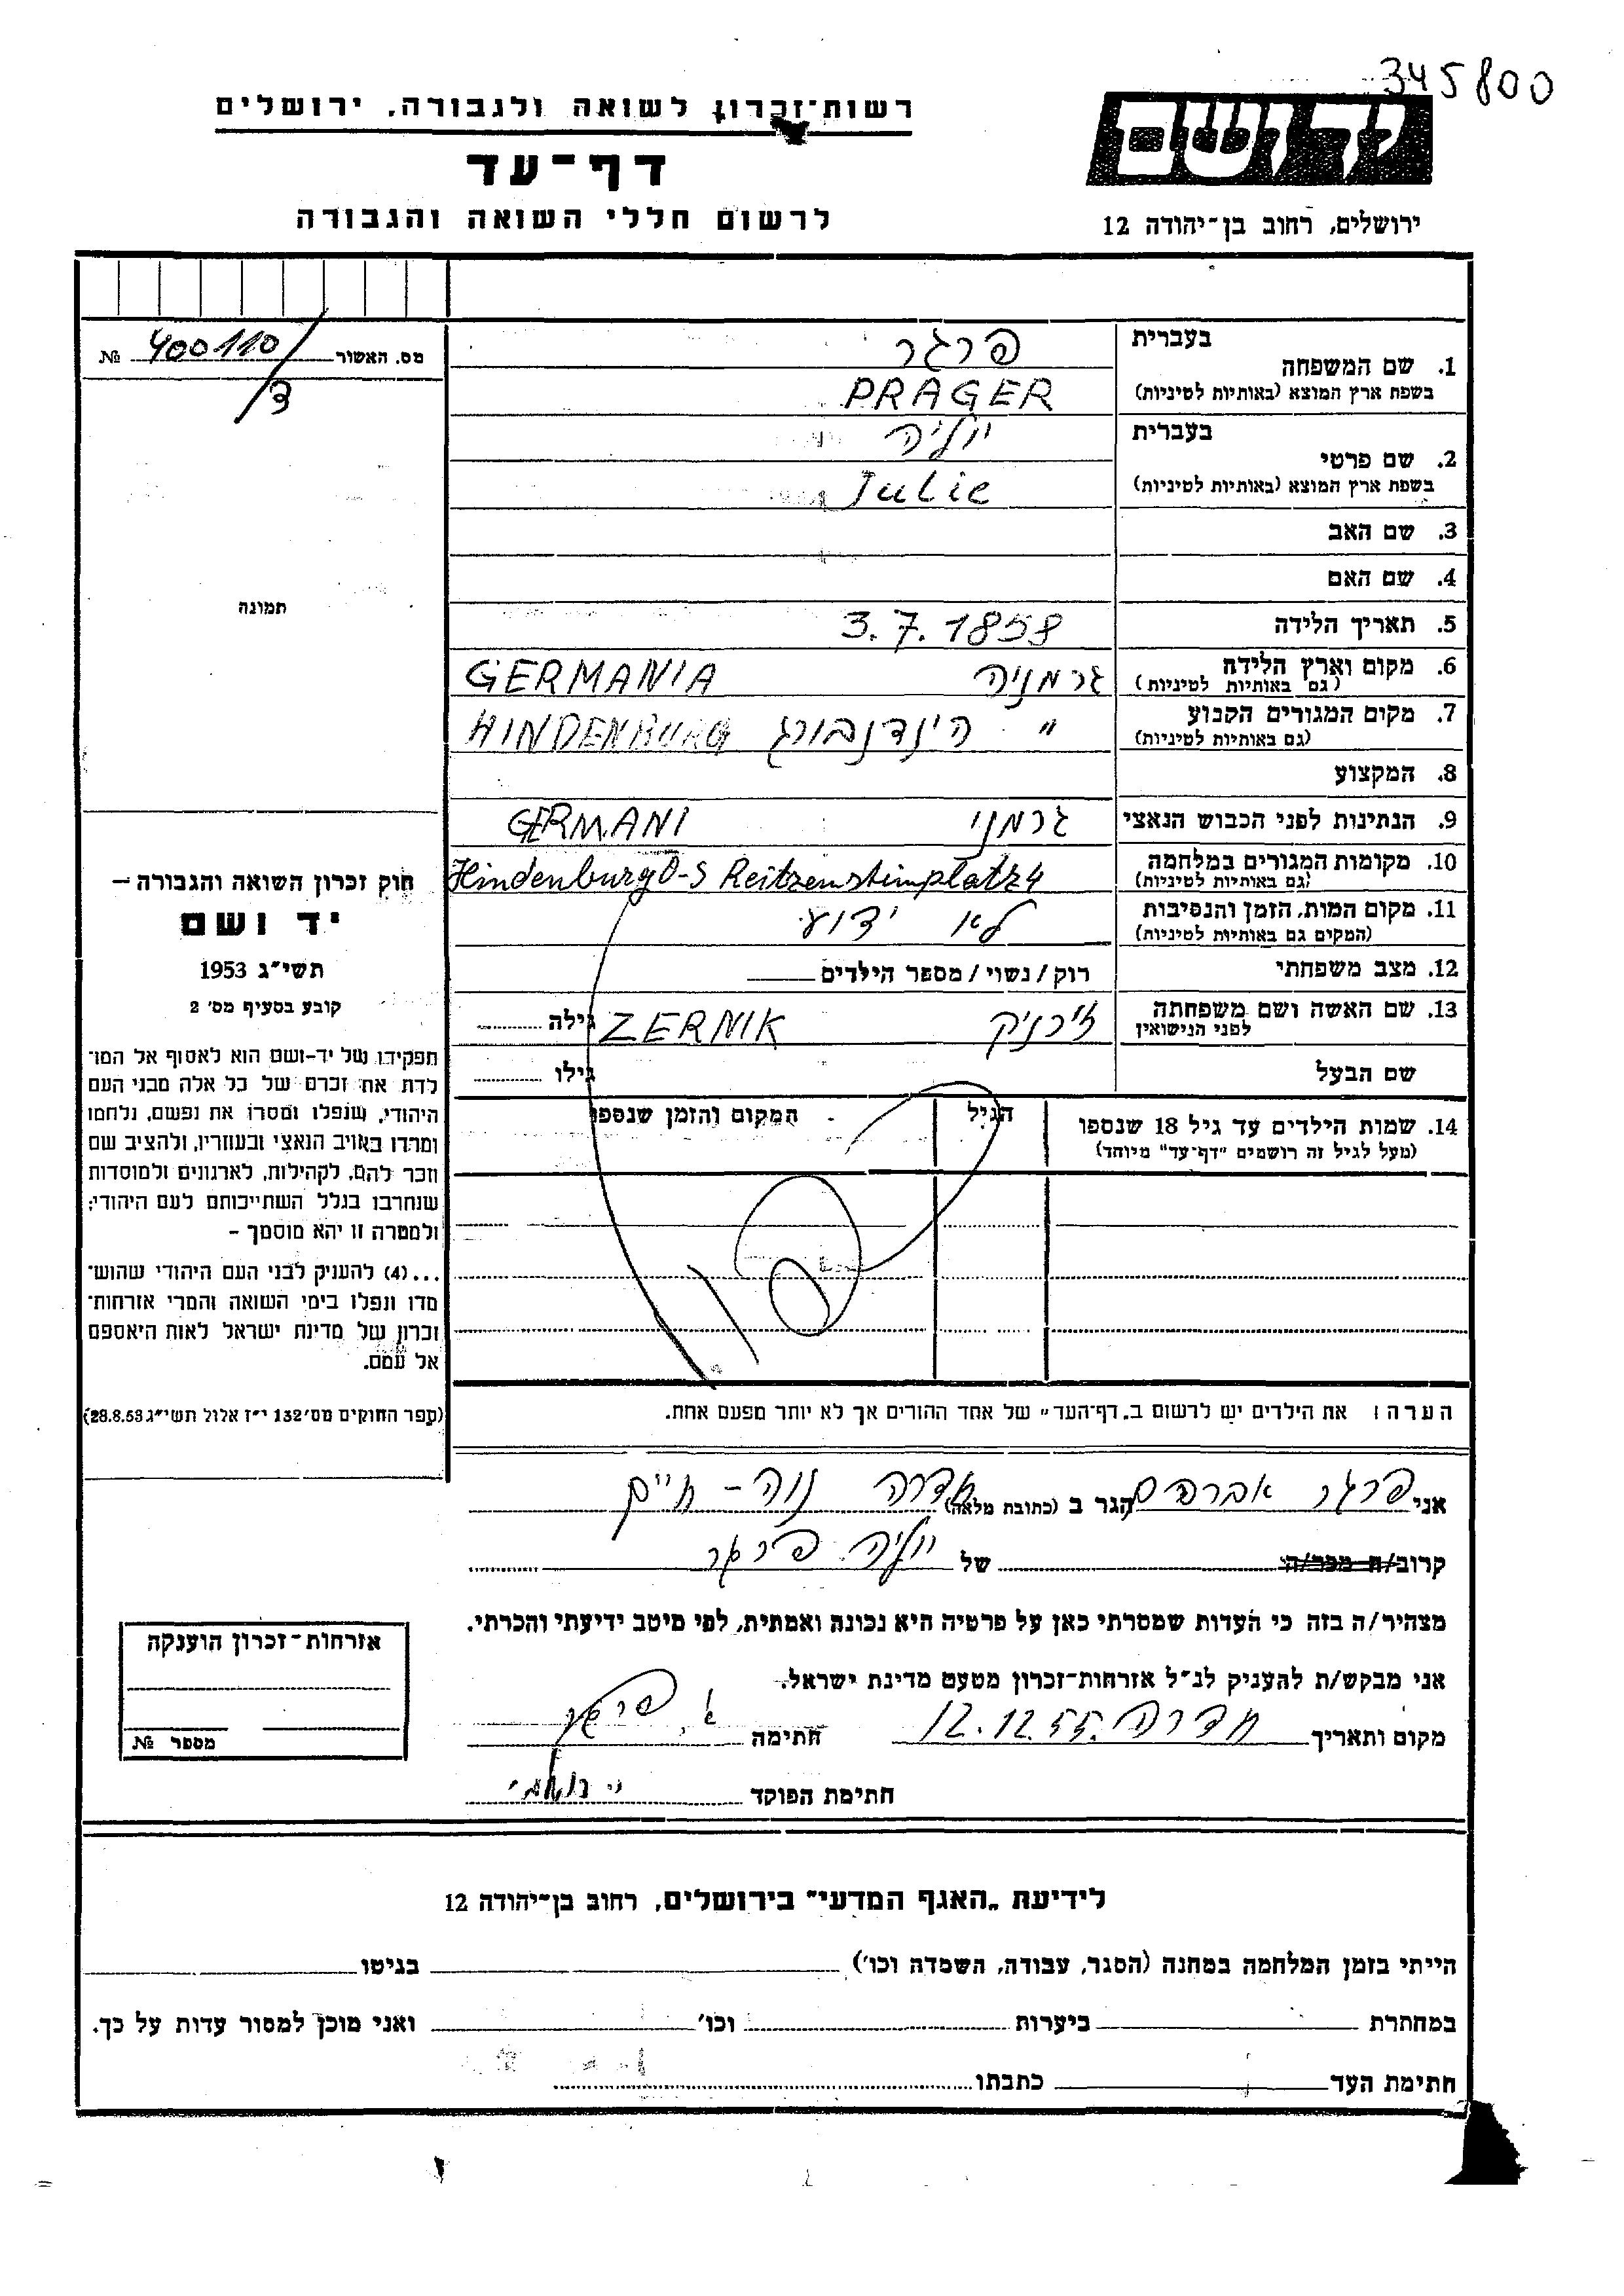 345800
רשות־זכרון לשואה ולגבורה, ירושלים
יד ושם
דף־עד
לרשום חללי השואה והגבורה
ירושלים, רחוב בן־יהודה 12
מס. האשור 400110/ №
ד/
בעברית פרגר
1. שם המשפחה
בשפת ארץ המוצא (באותיות לטיניות) PRAGER
בעברית יוליה
2. שם פרטי
בשפת ארץ המוצא (באותיות לטיניות) Julie
3. שם האב
4. שם האם
תמונה
5. תאריך הלידה 3.7.1858
6. מקום וארץ הלידה גרמניה GERMANIA
(גם באותיות לטיניות)
7. מקום המגורים הקבוע " הינדנבורג HINDENBURG
(גם באותיות לטיניות)
8. המקצוע
9. הנתינות לפני הכבוש הנאצי גרמני GERMANI
10. מקומות המגורים במלחמה Hindenburg O-S Reitzensteinplatz 4
(גם באותיות לטיניות)
11. מקום המות, הזמן והנסיבות לא ידוע
(המקום גם באותיות לטיניות)
12. מצב משפחתי רוק/נשוי/מספר הילדים
13. שם האשה ושם משפחתה זירניק ZERNIK גילה
לפני הנישואין
שם הבעל גילו
14. שמות הילדים עד גיל 18 שנספו הגיל המקום והזמן שנספו
(מעל לגיל זה רושמים "דף־עד" מיוחד)
חוק זכרון השואה והגבורה –
יד ושם
תשי״ג 1953
קובע בסעיף מס׳ 2
תפקידו של יד-ושם הוא לאסוף אל המו־
לדת את זכרם של כל אלה מבני העם
היהודי, שנפלו ומסרו את נפשם, נלחמו
ומרדו באויב הנאצי ובעוזריו, ולהציב שם
וזכר להם, לקהילות, לארגונים ולמוסדות
שנחרבו בגלל השתייכותם לעם היהודי;
ולמטרה זו יהא מוסמך –
...(4) להעניק לבני העם היהודי שהוש־
מדו ונפלו בימי השואה והמרי אזרחות־
זכרון של מדינת ישראל לאות היאספם
אל עמם.
(ספר החוקים מס׳132 י״ז אלול תשי״ג 28.8.53)
הערה: את הילדים יש לרשום ב„דף־העד״ של אחד ההורים אך לא יותר מפעם אחת.
אני פרגר אברהם הגר ב (כתובת מלאה) חדרה נוה - חיים
קרוב/ת מכר/ה של יוליה פרגר
מצהיר/ה בזה כי העדות שמסרתי כאן על פרטיה היא נכונה ואמתית, לפי מיטב ידיעתי והכרתי.
אני מבקש/ת להעניק לנ״ל אזרחות־זכרון מטעם מדינת ישראל.
מקום ותאריך חדרה. 12.12.55 חתימה א. פרגר
חתימת הפוקד
אזרחות־זכרון הוענקה
מספר №
לידיעת „האגף המדעי״ בירושלים, רחוב בן־יהודה 12
הייתי בזמן המלחמה במחנה (הסגר, עבודה, השמדה וכו׳) בגיטו
במחתרת ביערות וכו׳ ואני מוכן למסור עדות על כך.
חתימת העד כתבתו